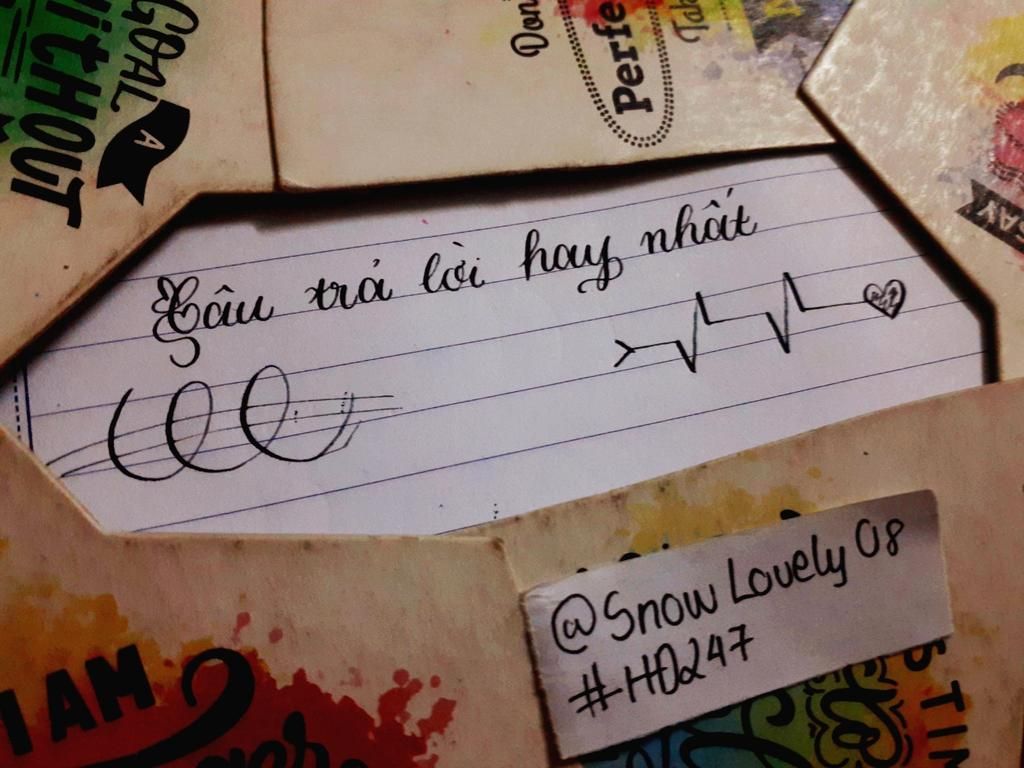 GOAL
WitHOUT
A
Don'
Perfe
Tak
SAY
Câu trả lời hay nhất
@Snow Lovely 08
#HD247
I AM
STIM